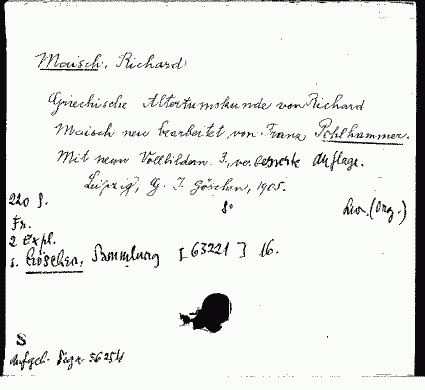 Maisch, Richard
Griechische Altertumskunde von Richard
Maisch neu bearbeitet von Franz Pohlhammer.
Mit neun Vollbildern. 3., verbesserte Auflage.
Leipzig, G. J. Göschen, 1905.
220 S. 8° Lw. (Orig.)
Fr.
2 Expl.
s. Göschen, Sammlung [63221] 16.
S
Aufgeh. Sign. 56254